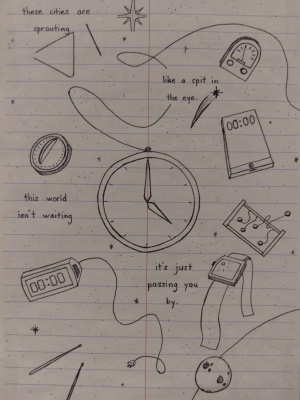 these cities are
sprouting
like a spit in
the eye.
00:00
this world
isn't waiting
it's just
passing you
by.
00:00